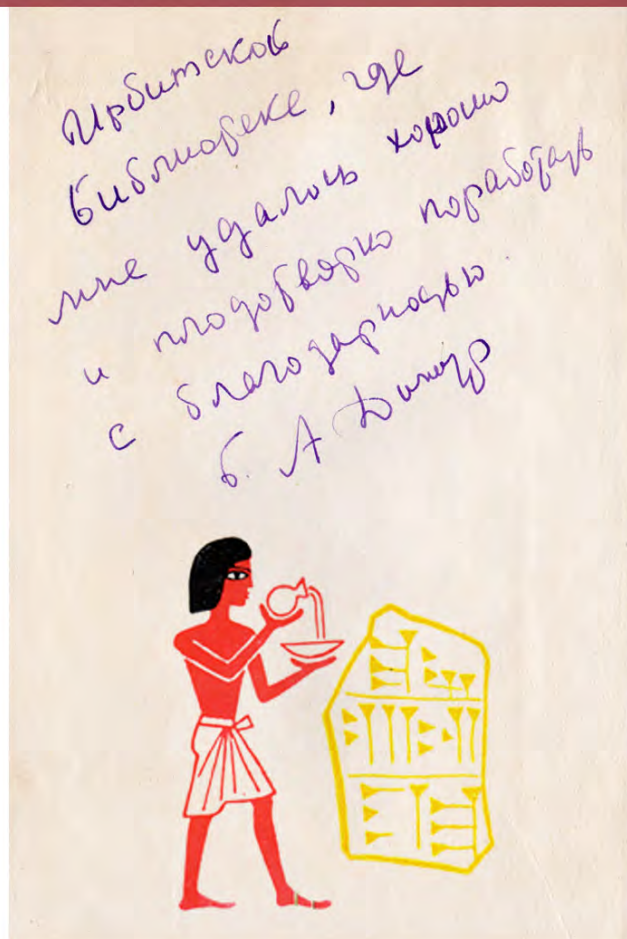 Ирбитской
библиотеке, где
мне удалось хорошо
и плодотворно поработать
с благодарностью.
Б. А Динур